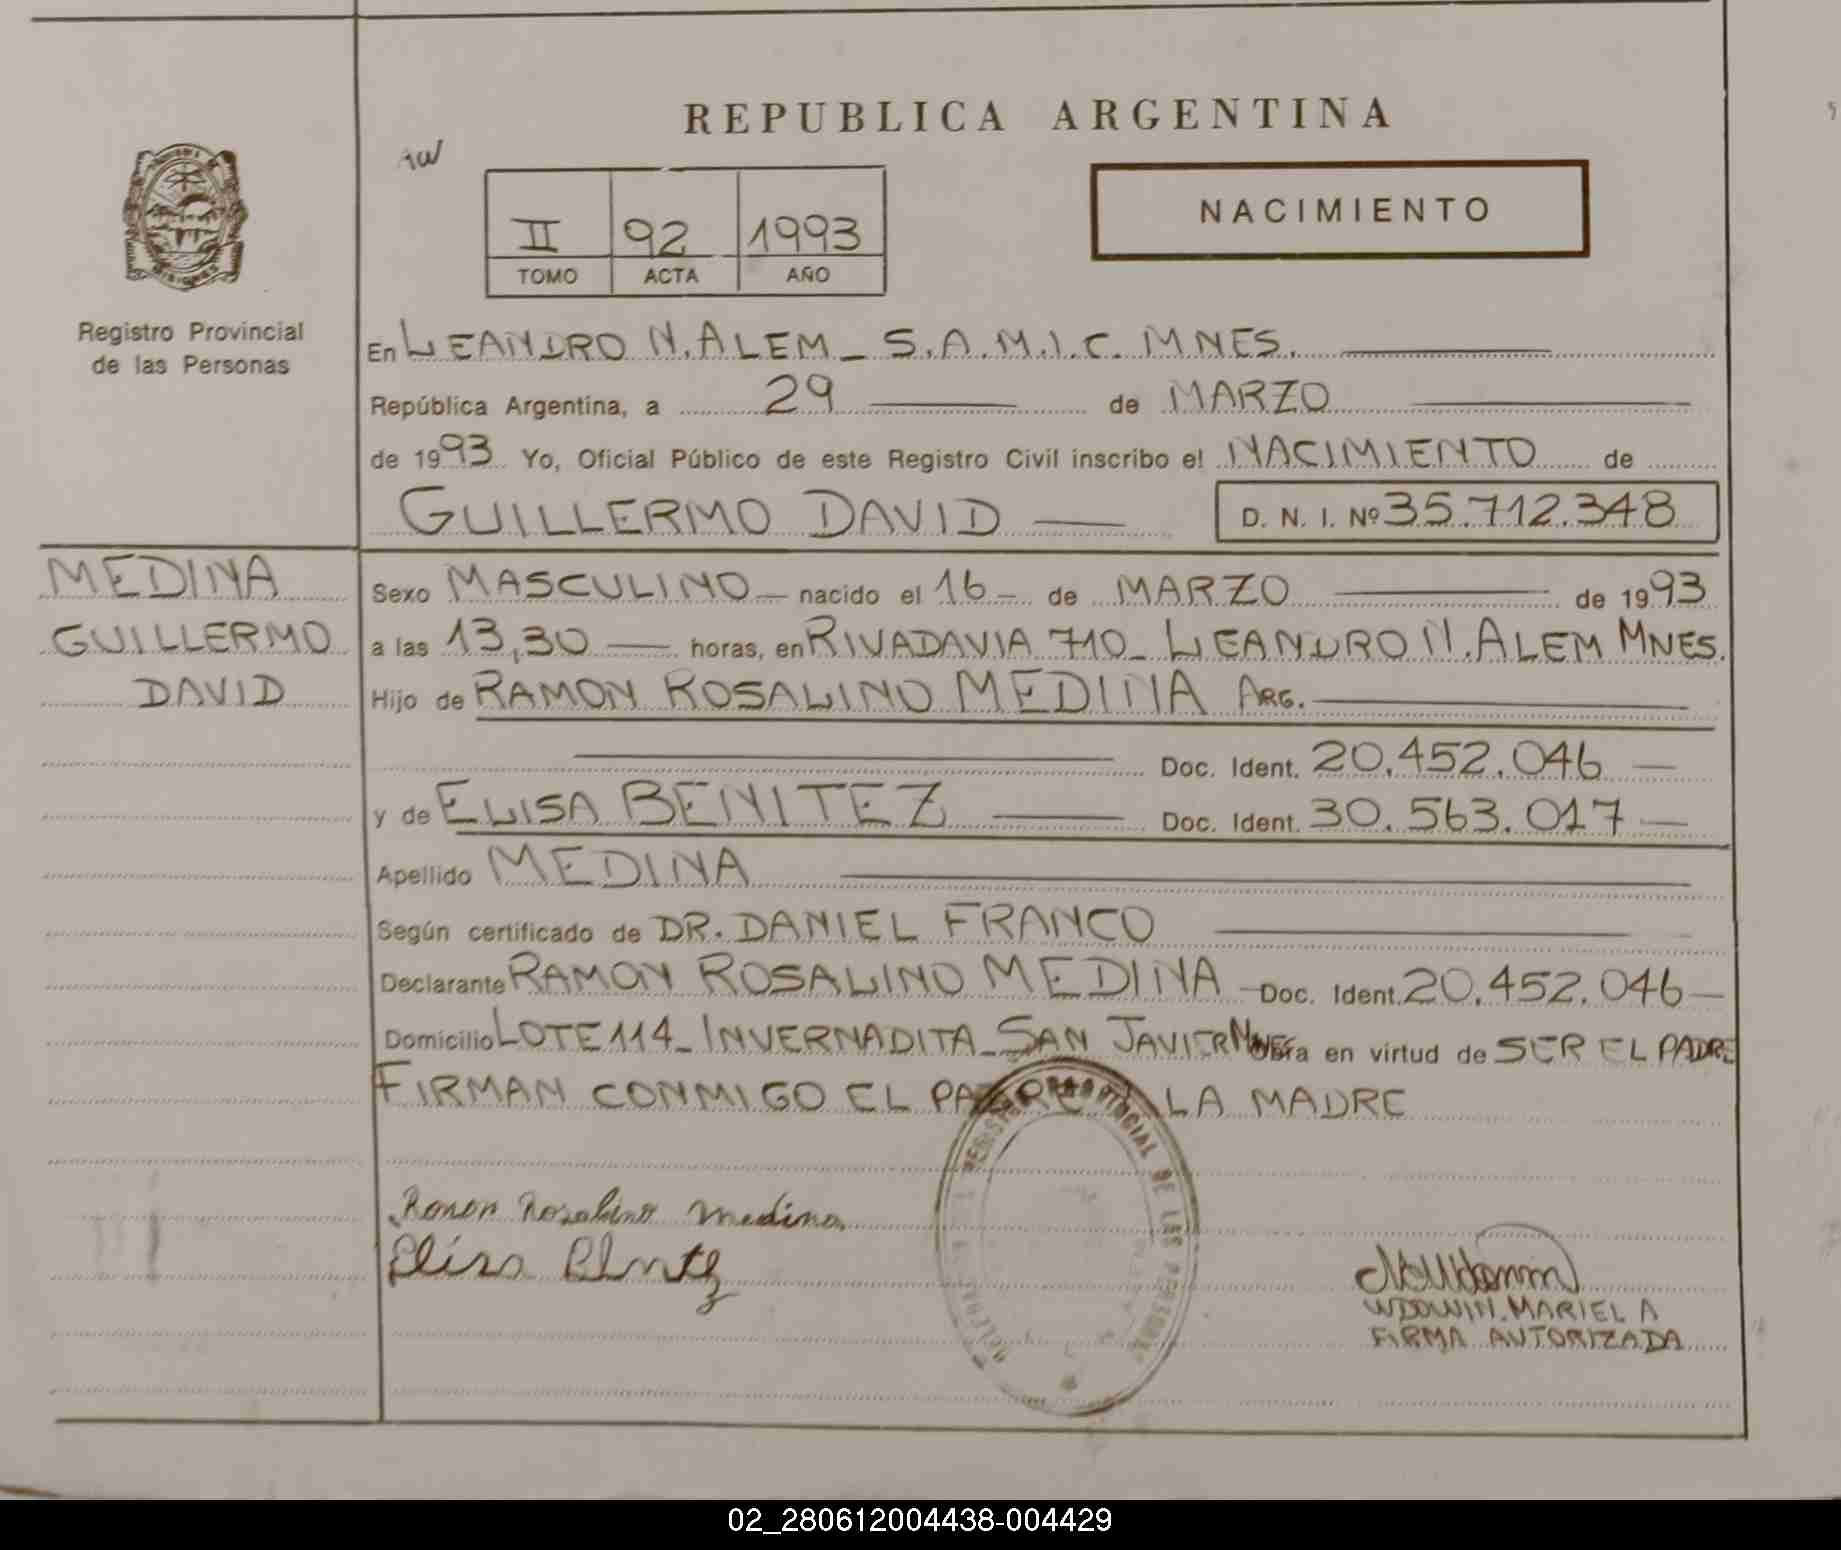 REPUBLICA ARGENTINA
II 92 1993
TOMO ACTA AÑO
NACIMIENTO
Registro Provincial
de las Personas
En LEANDRO N. ALEM _ S.A.M.I.C. MNES.
República Argentina, a 29 de MARZO
de 1993 Yo, Oficial Público de este Registro Civil inscribo el NACIMIENTO de
GUILLERMO DAVID D. N. I. Nº 35.712.348
MEDINA
GUILLERMO
DAVID
Sexo MASCULINO nacido el 16 de MARZO de 1993
a las 13,30 horas, en RIVADAVIA 710_ LEANDRO N. ALEM MNES.
Hijo de RAMON ROSALINO MEDINA ARG.
Doc. Ident. 20.452.046
y de ELISA BENITEZ Doc. Ident. 30.563.017
Apellido MEDINA
Según certificado de DR. DANIEL FRANCO
Declarante RAMON ROSALINO MEDINA Doc. Ident. 20.452.046
Domicilio LOTE 114_ INVERNADITA_ SAN JAVIER MNES Obra en virtud de SER EL PADRE
FIRMAN CONMIGO EL PADRE Y LA MADRE
REGISTRO PROVINCIAL DE LAS PERSONAS
Ramon Rosalino Medina
Elisa
WDOWIN MARIELA
FIRMA AUTORIZADA
02_280612004438-004429